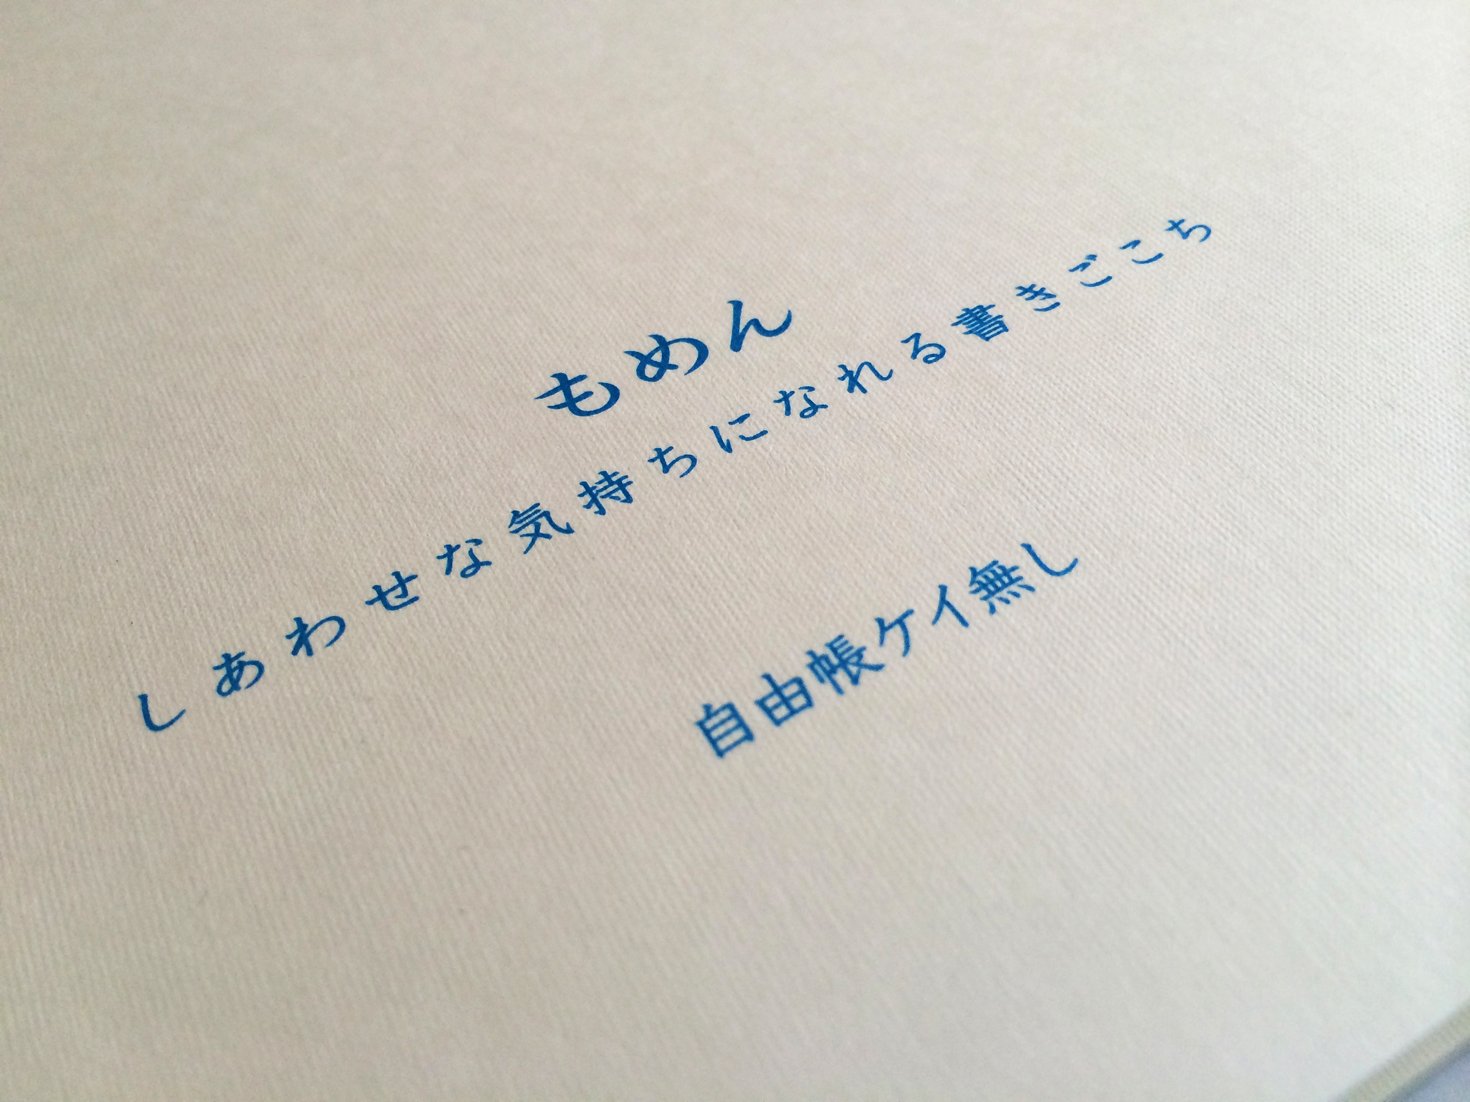 もめん
しあわせな気持ちになれる書きごこち
自由帳ケイ無し